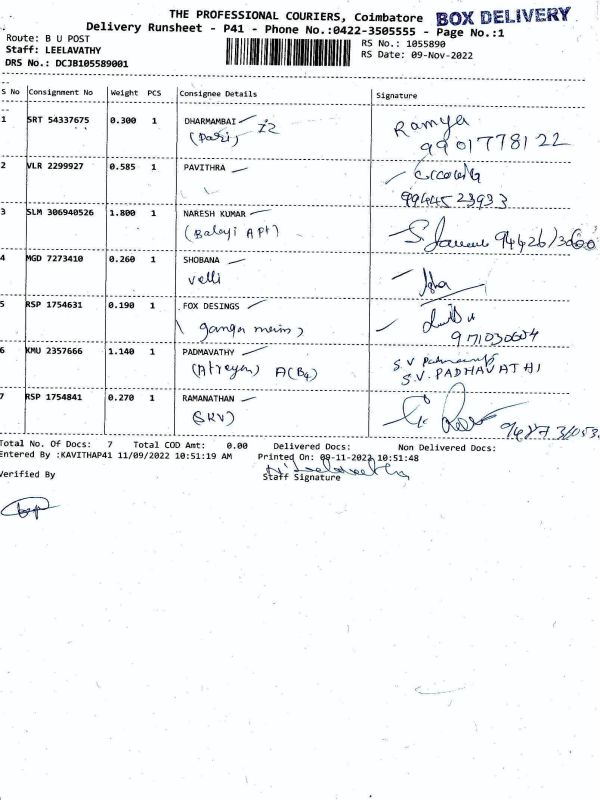 THE PROFESSIONAL COURIERS, Coimbatore BOX DELIVERY
Delivery Runsheet - P41 - Phone No.:0422-3505555 - Page No.:1
Route: B U POST
Staff: LEELAVATHY
DRS No.: DCJB105589001
RS No.: 1055890
RS Date: 09-Nov-2022
S No Consignment No Weight PCS Consignee Details Signature
1 SRT 54337675 0.300 1 DHARMAMBAI Ramya
9901778122
2 VLR 2299927 0.585 1 PAVITHRA
9944523933
3 SLM 306940526 1.800 1 NARESH KUMAR
(Balaji Apt)
4 MGD 7273410 0.260 1 SHOBANA
Valli
5 RSP 1754631 0.190 1 FOX DESINGS
6 KMU 2357666 1.140 1 PADMAVATHY
(Atreyam) A(B4) S.V. PADMAVATHI
7 RSP 1754841 0.270 1 RAMANATHAN
(SKV)
Total No. Of Docs: 7 Total COD Amt: 0.00 Delivered Docs: Non Delivered Docs:
Entered By :KAVITHAP41 11/09/2022 10:51:19 AM Printed On: 09-11-2022 10:51:48
Verified By Staff Signature